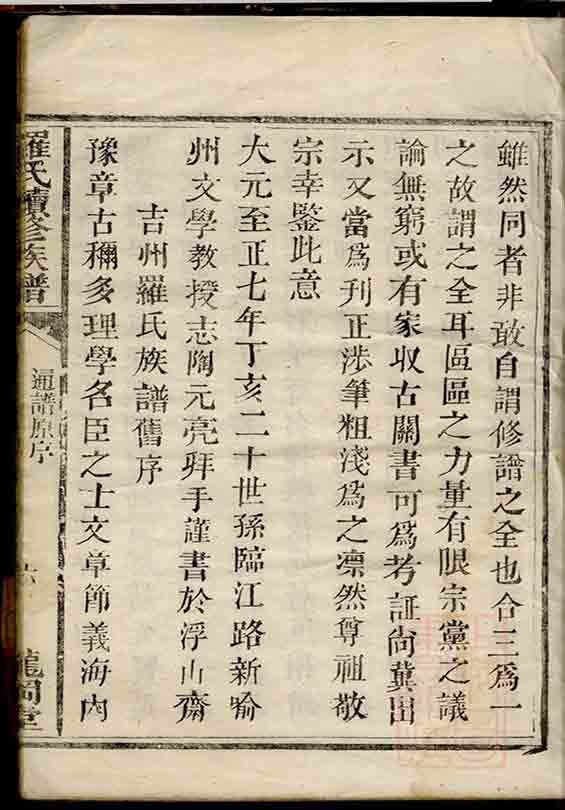 雖然同者非敢自謂修譜之全也合三爲一
之故謂之全耳區區之力量有限宗黨之議
論無窮或有家收古關書可爲考証尙冀出
示又當爲刊正渉筆粗淺爲之凛然尊祖敬
宗幸鑒此意
大元至正七年丁亥二十世孫臨江路新喻
州文學教授志陶元亮拜手謹書於浮山齋
吉州羅氏族譜舊序
豫章古稱多理學名臣之士文章節義海内
羅氏續修族譜
通譜原序
六
龍岡堂